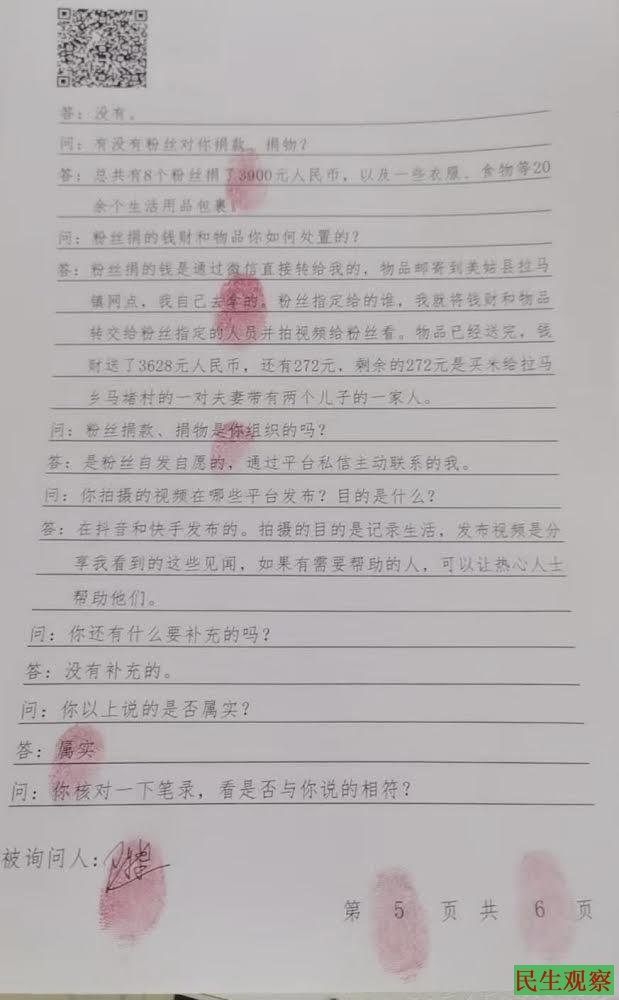 答：没有。
问：有没有粉丝对你捐款、捐物？
答：总共有8个粉丝捐了3900元人民币，以及一些衣服、食物等20
余个生活用品包裹。
问：粉丝捐的钱财和物品你如何处置的？
答：粉丝捐的钱是通过微信直接转给我的，物品邮寄到美姑县拉马
镇网点，我自己去拿的。粉丝指定给的谁，我就将钱财和物品
转交给粉丝指定的人员并拍视频给粉丝看。物品已经送完，钱
财送了3628元人民币，还有272元，剩余的272元是买米给拉马
乡马堵村的一对夫妻带有两个儿子的一家人。
问：粉丝捐款、捐物是你组织的吗？
答：是粉丝自发自愿的，通过平台私信主动联系的我。
问：你拍摄的视频在哪些平台发布？目的是什么？
答：在抖音和快手发布的。拍摄的目的是记录生活，发布视频是分
享我看到的这些见闻，如果有需要帮助的人，可以让热心人士
帮助他们。
问：你还有什么要补充的吗？
答：没有补充的。
问：你以上说的是否属实？
答：属实
问：你核对一下笔录，看是否与你说的相符？
被询问人：
第 5 页 共 6 页
民生观察